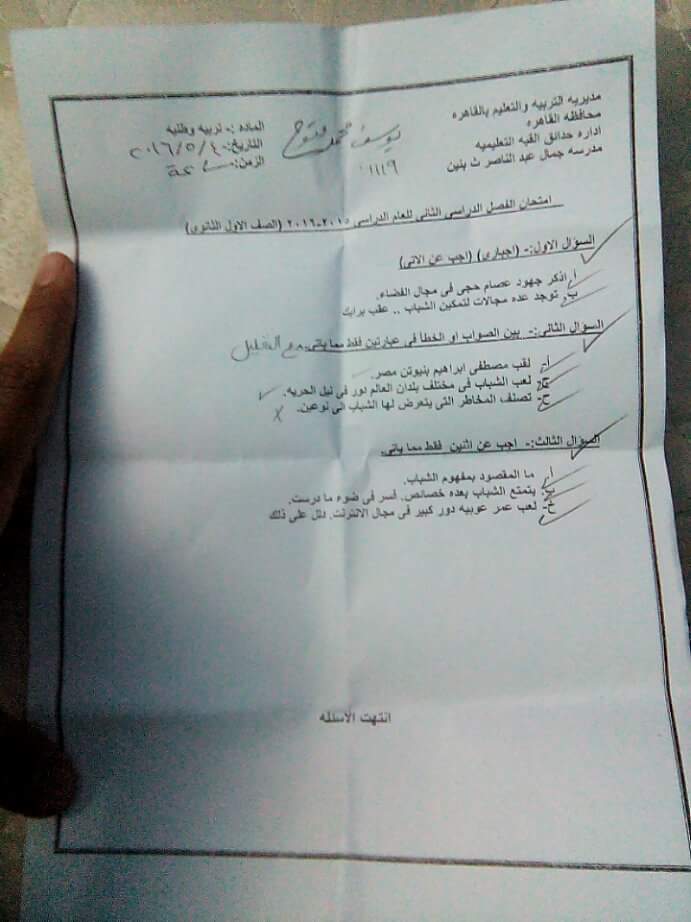 مديريه التربيه والتعليم بالقاهره
محافظه القاهره
اداره حدائق القبه التعليميه
مدرسه جمال عبد الناصر ث بنين
يوسف محمد فتوح
١١١٩
الماده :- تربيه وطنيه
التاريخ:- ٢٠١٦/٥/٤
الزمن:- ساعة
امتحان الفصل الدراسى الثانى للعام الدراسى ٢٠١٥-٢٠١٦ (الصف الاول الثانوى)
السؤال الاول:- (اجبارى) (اجب عن الاتى)
أ- اذكر جهود عصام حجى فى مجال الفضاء.
ب- توجد عده مجالات لتمكين الشباب .. عقب برايك
السؤال الثانى:- بين الصواب او الخطأ فى عبارتين فقط مما ياتى. مع التعليل
أ- لقب مصطفى ابراهيم بنيوتن مصر.
لعب الشباب فى مختلف بلدان العالم دور فى نيل الحريه.
ج- تصنف المخاطر التى يتعرض لها الشباب الى نوعين.
السؤال الثالث:- اجب عن اثنين فقط مما ياتى.
أ. ما المقصود بمفهوم الشباب.
ب. يتمتع الشباب بعده خصائص. فسر فى ضوء ما درست.
لعب عمر عوبيه دور كبير فى مجال الانترنت. دلل على ذلك
انتهت الاسئله